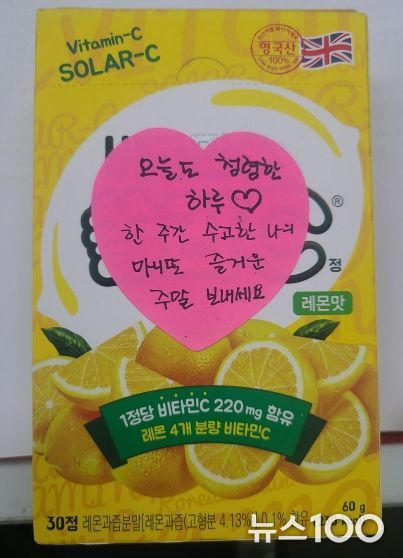 Vitamin-C
SOLAR-C
영국산
100%
오늘도 청렴한
하루♡
한 주간 수고한 나의
마니또 즐거운
주말 보내세요
®
정
레몬맛
1정당 비타민C 220 mg 함유
레몬 4개 분량 비타민C
60 g
30정 레몬과즙분말[레몬과즙(고형분 4.13%) 0.1% 함유
뉴스100